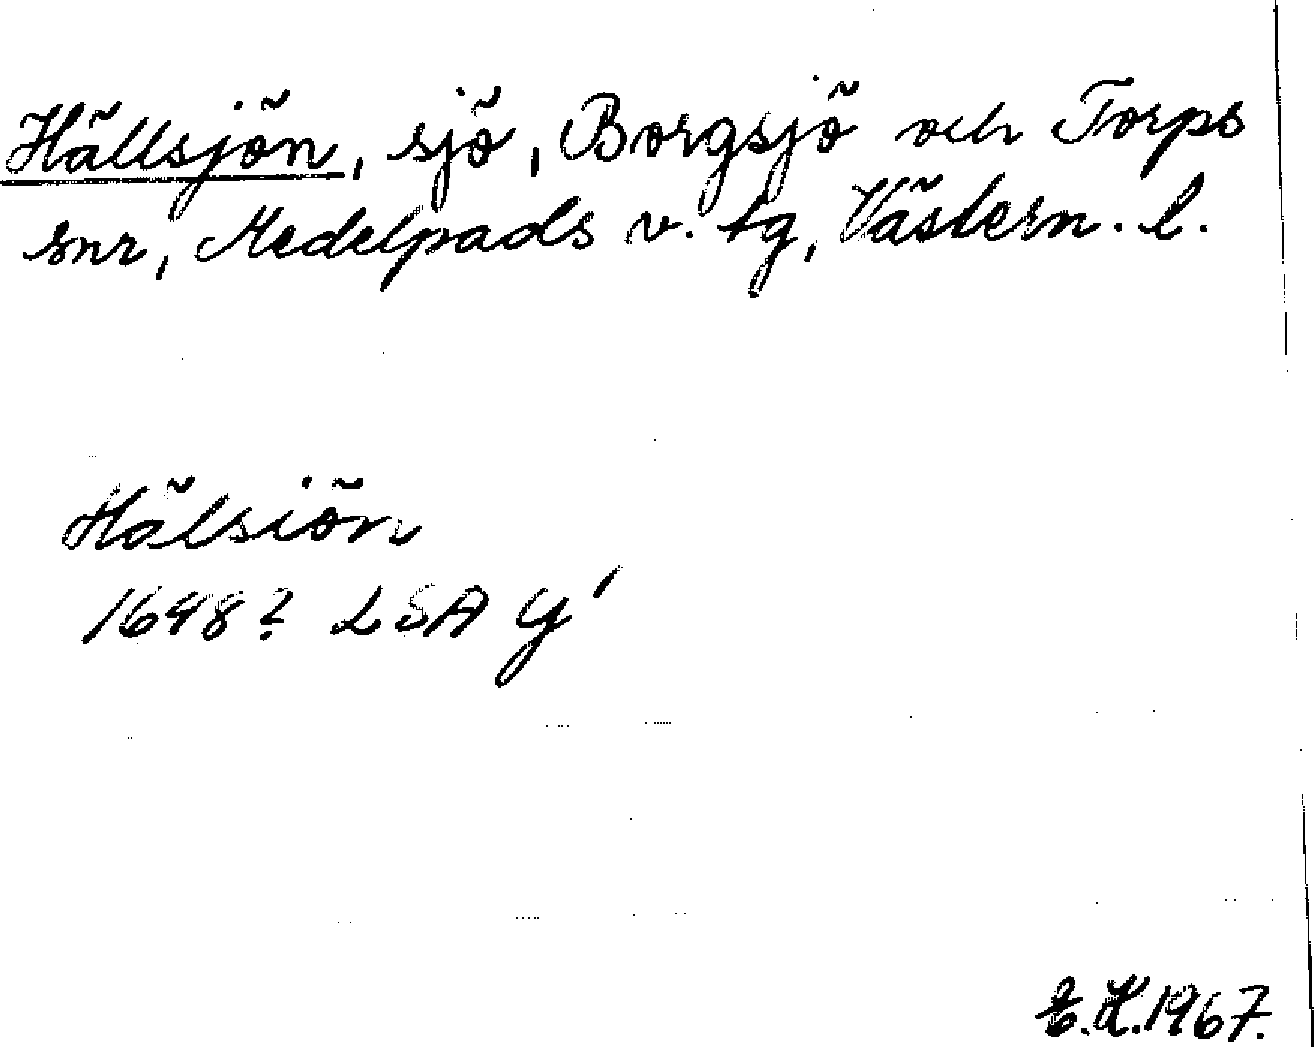 Hällsjön, sjö, Borgsjö och Torps
snr, Medelpads v. tg, Västern. l.
Hälsiön
1648? LSA Y¹
E.H.1967.